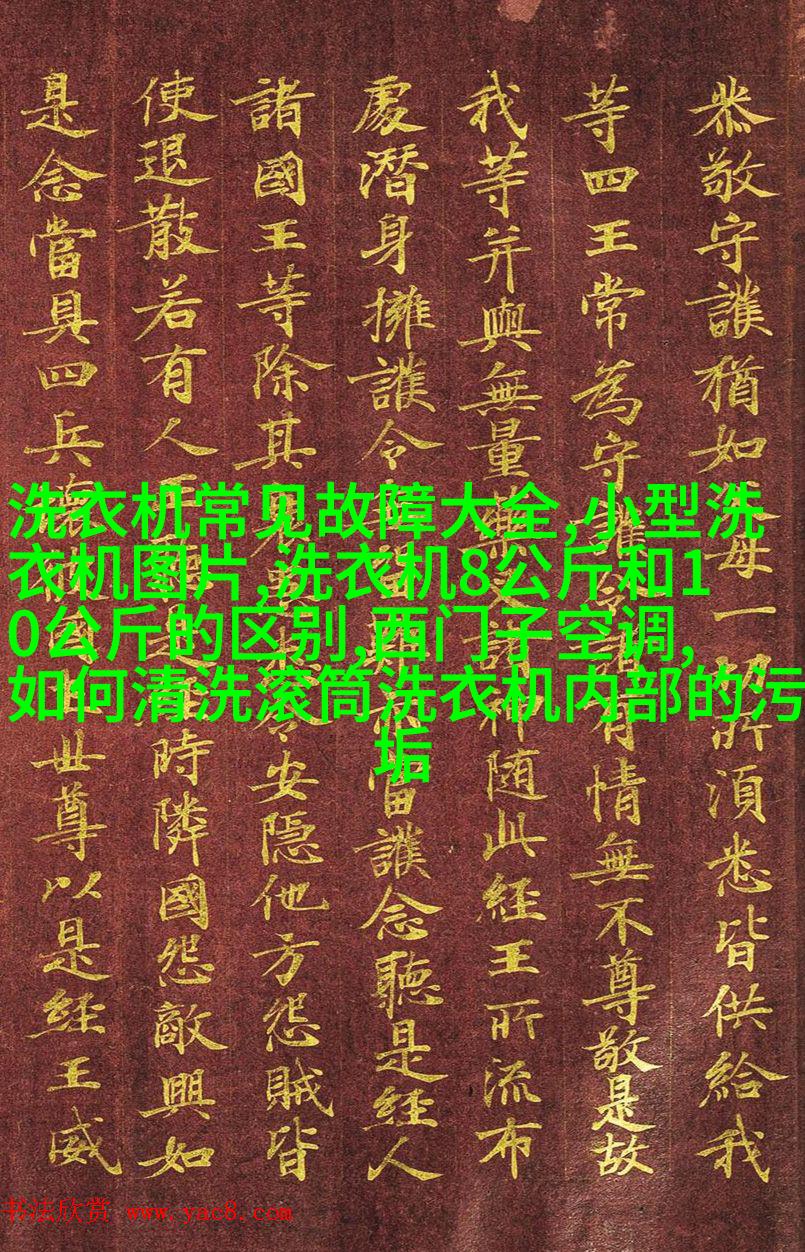 恭敬守護猶如母一切所須悉皆供給我
等四王常為守護諸有情無不尊敬是故
我等并與無量藥叉諸神随此經王所流布
處潛身擁護令當護念聽是經人
諸國王等除其令安隱他方怨賊皆
使退散若有人王時隣國怨敵興如
是念當具四兵國世尊以是經王威
洗衣机常见故障大全,小型洗
衣机图片,洗衣机8公斤和1
0公斤的区别,西门子空调,
如何清洗滚筒洗衣机内部的污
垢
书法欣赏 www.yac8.com